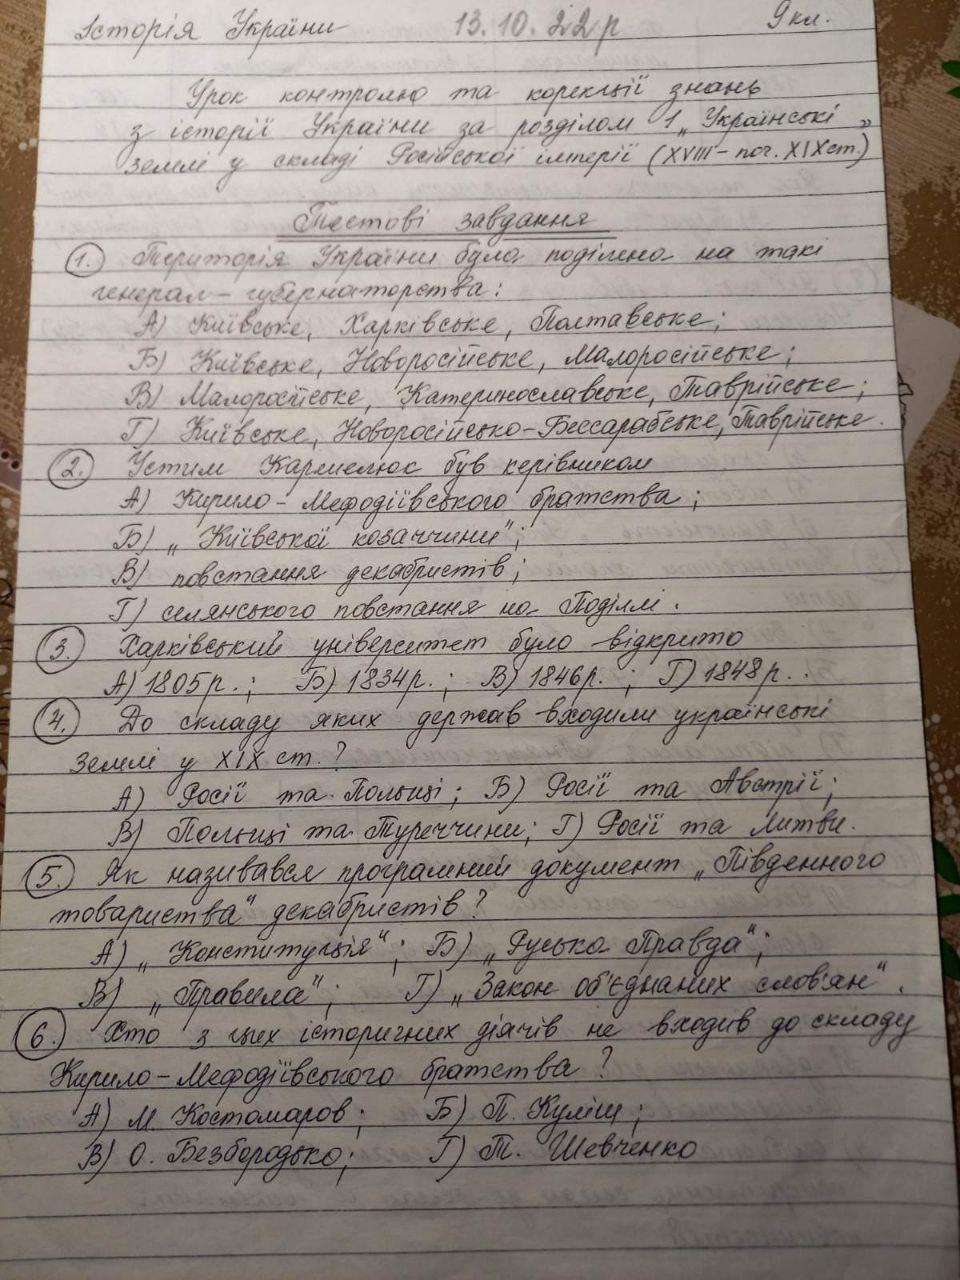 Історія України 13.10.22р 9 кл.
Урок контролю та корекції знань
з історії України за розділом 1 „Українські
землі у складі Російської імперії (XVIII – поч. XIX ст.)”
Тестові завдання
1. Територія України була поділена на такі
генерал – губернаторства:
А) Київське, Харківське, Полтавське;
Б) Київське, Новоросійське, Малоросійське;
В) Малоросійське, Катеринославське, Таврійське;
Г) Київське, Новоросійсько-Бессарабське, Таврійське.
2. Устим Кармелюк був керівником
А) Кирило- Мефодіївського братства;
Б) „Київської козаччини";
В) повстання декабристів;
Г) селянського повстання на Поділлі.
3. Харківський університет було відкрито
А) 1805р.; Б) 1834р.; В) 1846р.; Г) 1848р..
4. До складу яких держав входили українські
землі у XIX ст.?
А) Росії та Польщі; Б) Росії та Австрії;
В) Польщі та Туреччини; Г) Росії та Литви.
5. Як називався програмний документ „Південного
товариства" декабристів?
А) „Конституція"; Б) „Руська Правда";
В) „Правила"; Г) „Закон об'єднаних слов'ян".
6. Хто з цих історичних діячів не входив до складу
Кирило – Мефодіївського братства?
А) М. Костомаров; Б) П. Куліш;
В) О. Безбородько; Г) Т. Шевченко